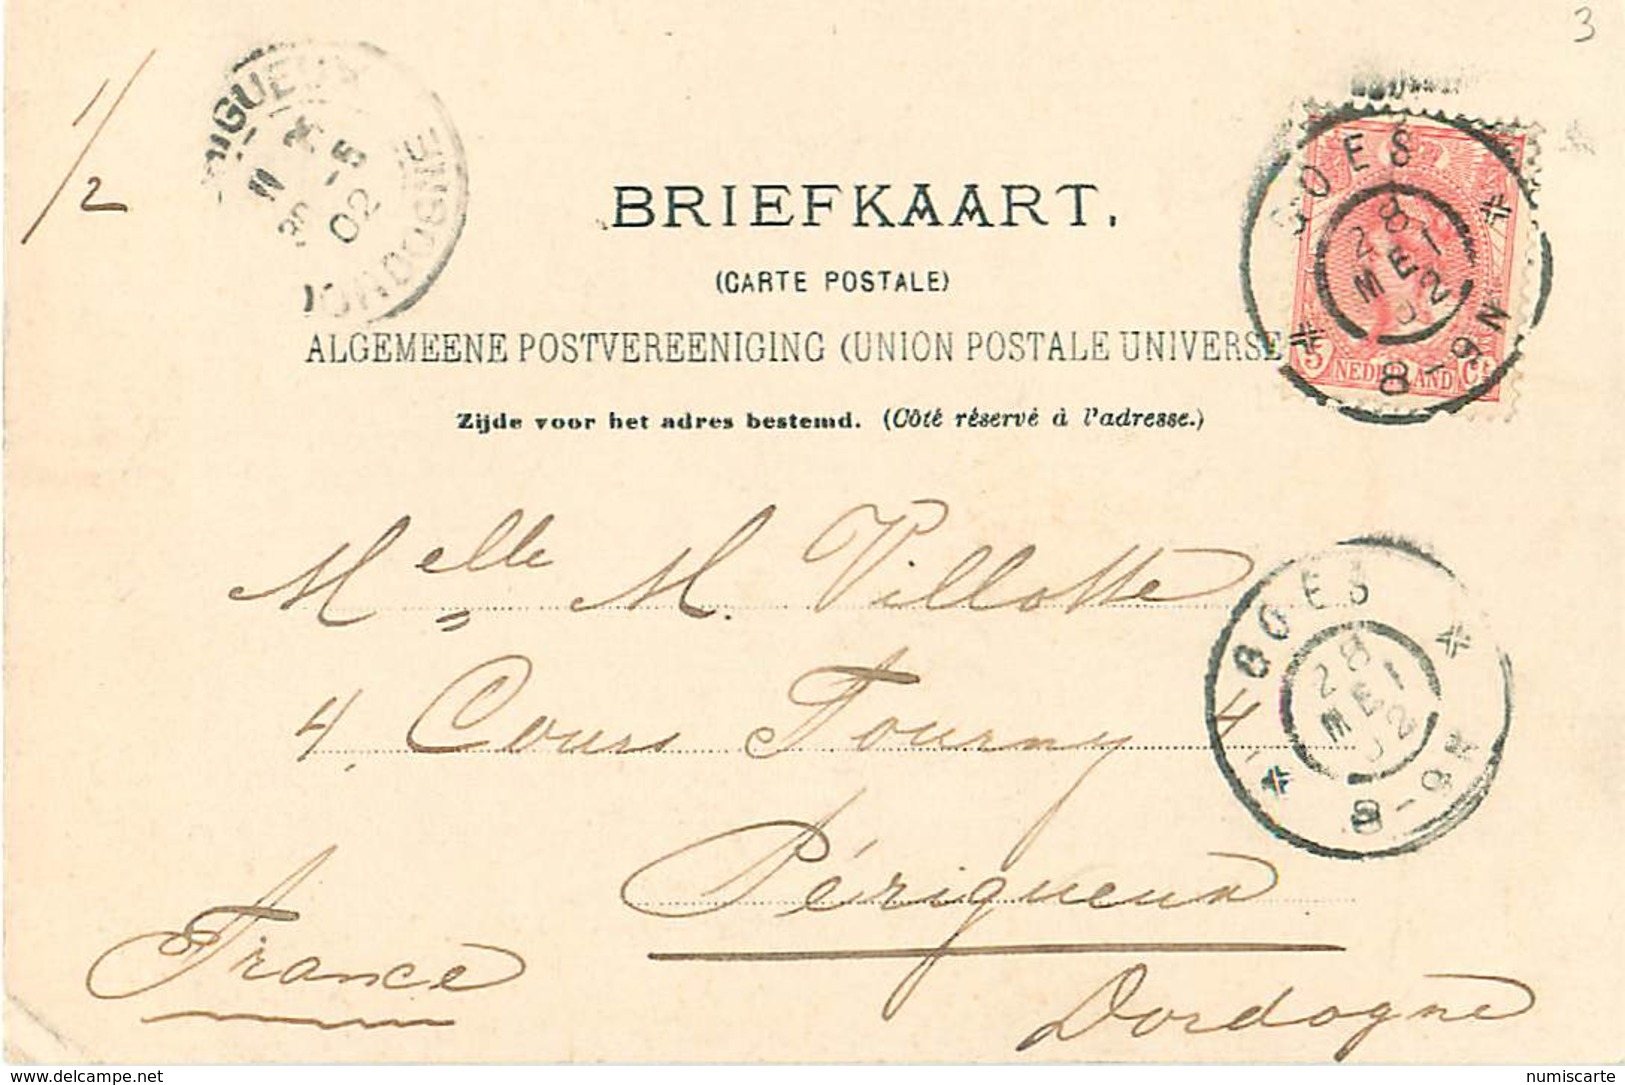 3
1/2
PÉRIGUEUX
30 -5
02
DORDOGNE
BRIEFKAART.
(CARTE POSTALE)
ALGEMEENE POSTVEREENIGING (UNION POSTALE UNIVERSE
Zijde voor het adres bestemd. (Côté réservé à l'adresse.)
GOES
28
MEI
02
8-9N
5 NEDERLAND Ct
Melle M. Villotte
4, Cours Tourny 4
Périgueux
France
Dordogne
GOES
28
MEI
02
8-9N
www.delcampe.net
numiscarte